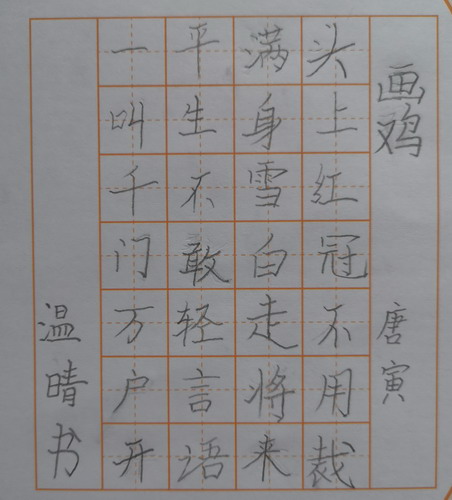 画鸡
唐寅
头上红冠不用裁
满身雪白走将来
平生不敢轻言语
一叫千门万户开
温晴书